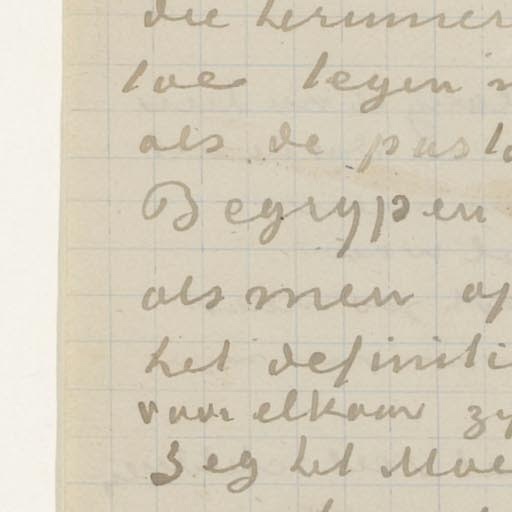 die herinner
toe tegen
als de pasto
Begrijpen
als men op
het definiti
van elkaar zy
Zeg het Moe